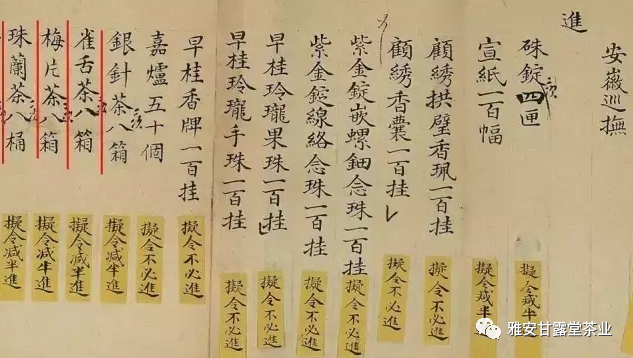 安徽巡撫
進
硃錠四匣
擬令減半
宣紙一百幅
擬令減半
顧綉拱璧香珮一百挂
擬令不必進
顧綉香囊一百挂
擬令不必進
紫金錠嵌螺鈿念珠一百挂
擬令不必進
紫金錠線絡念珠一百挂
擬令不必進
早桂玲瓏果珠一百挂
擬令不必進
早桂玲瓏手珠一百挂
擬令不必進
早桂香牌一百挂
擬令不必進
嘉爐五十個
擬令不必進
銀針茶八箱
擬令減半進
雀舌茶八箱
擬令減半進
梅片茶八箱
擬令減半進
珠蘭茶八桶
擬令減半進
雅安甘露堂茶业